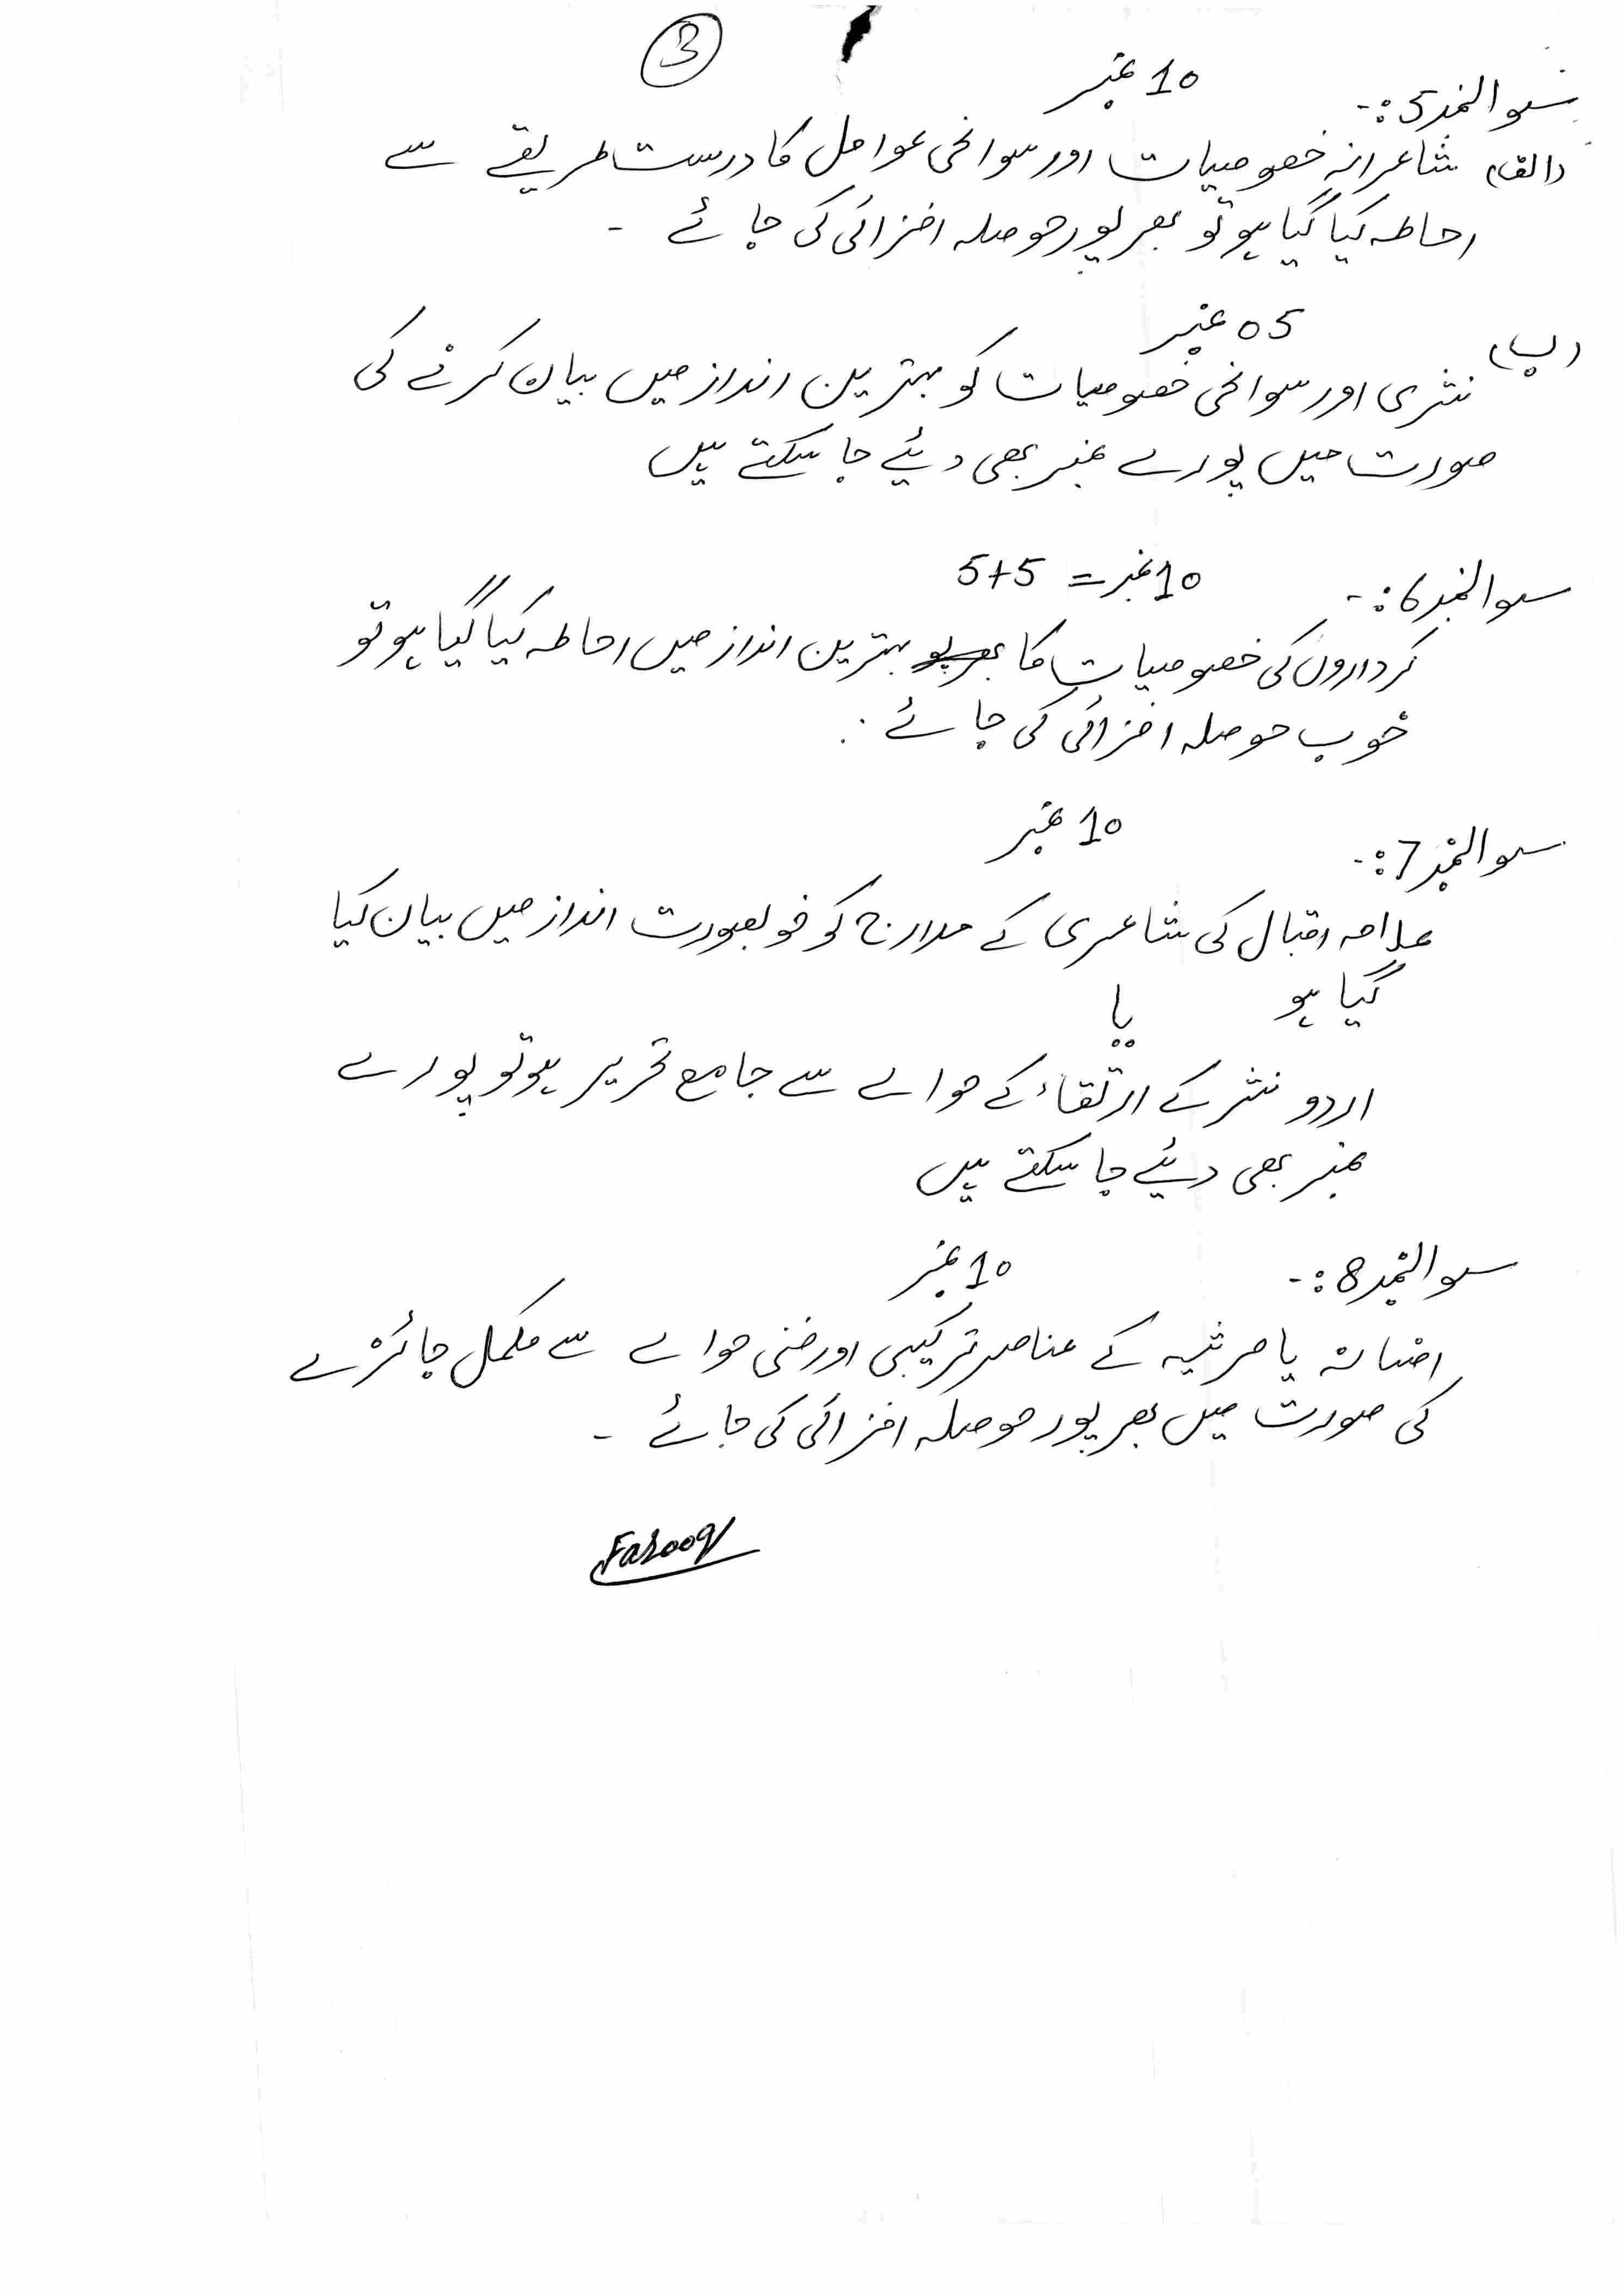 3
سوال نمبر 5:- 10 نمبر
(الف) شاعرانہ خصوصیات اور سوانحی عوامل کا درست طریقے سے
احاطہ کیا گیا ہو تو بھرپور حوصلہ افزائی کی جائے ۔
(ب) 05 نمبر
نثری اور سوانحی خصوصیات کو بہترین انداز میں بیان کرنے کی
صورت میں پورے نمبر بھی دیئے جا سکتے ہیں
سوال نمبر 6:- 10 نمبر = 5+5
کرداروں کی خصوصیات کا بہترین انداز میں احاطہ کیا گیا ہو تو
خوب حوصلہ افزائی کی جائے ۔
سوال نمبر 7:- 10 نمبر
علامہ اقبال کی شاعری کے مدارج کو خوبصورت انداز میں بیان کیا
گیا ہو یا
اردو نثر کے ارتقاء کے حوالے سے جامع تحریر ہو تو پورے
نمبر بھی دیئے جا سکتے ہیں
سوال نمبر 8:- 10 نمبر
افسانہ یا مرثیہ کے عناصر ترکیبی اور فنی حوالے سے مکمل جائزے
کی صورت میں بھرپور حوصلہ افزائی کی جائے ۔
Farooq